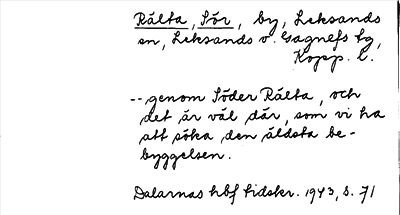 Rälta, Sör, by, Leksands
sn, Leksands o. Gagnefs tg,
Kopp. l.
-- genom Söder Rälta, och
det är väl där, som vi ha
att söka den äldsta be-
byggelsen.
Dalarnas hbf tidskr. 1943, s. 71